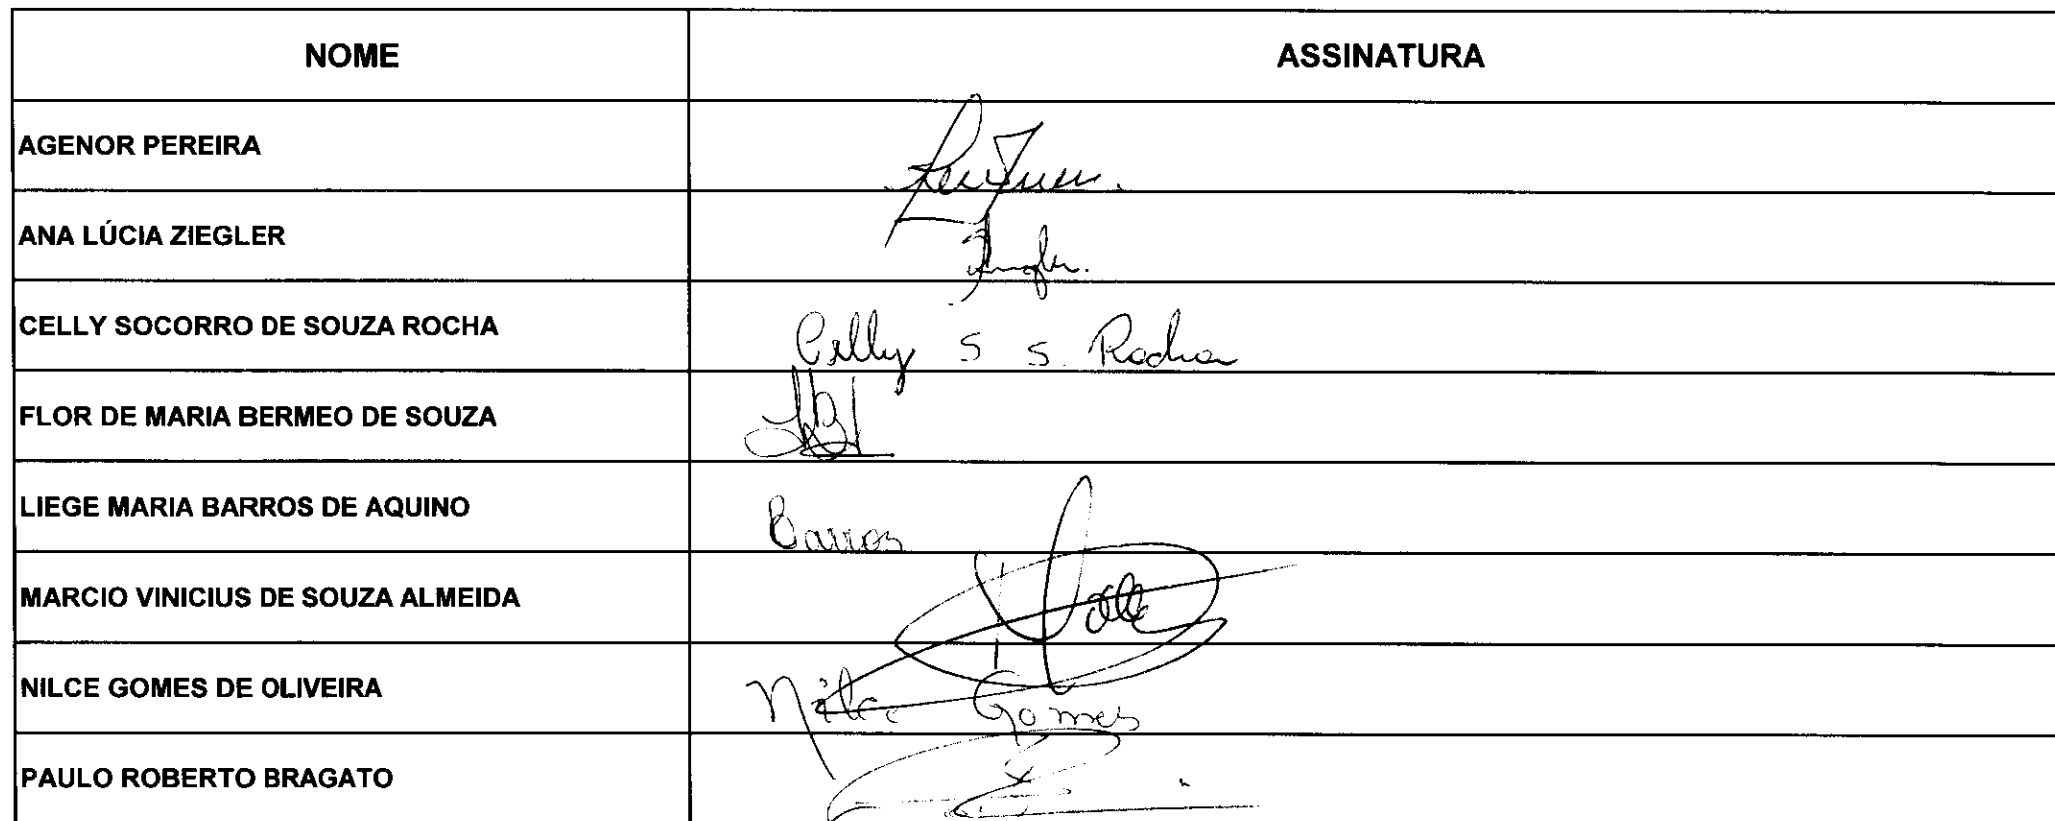 NOME ASSINATURA
AGENOR PEREIRA
ANA LÚCIA ZIEGLER
CELLY SOCORRO DE SOUZA ROCHA Celly S S. Rocha
FLOR DE MARIA BERMEO DE SOUZA
LIEGE MARIA BARROS DE AQUINO Barros
MARCIO VINICIUS DE SOUZA ALMEIDA
NILCE GOMES DE OLIVEIRA Nilce Gomes
PAULO ROBERTO BRAGATO